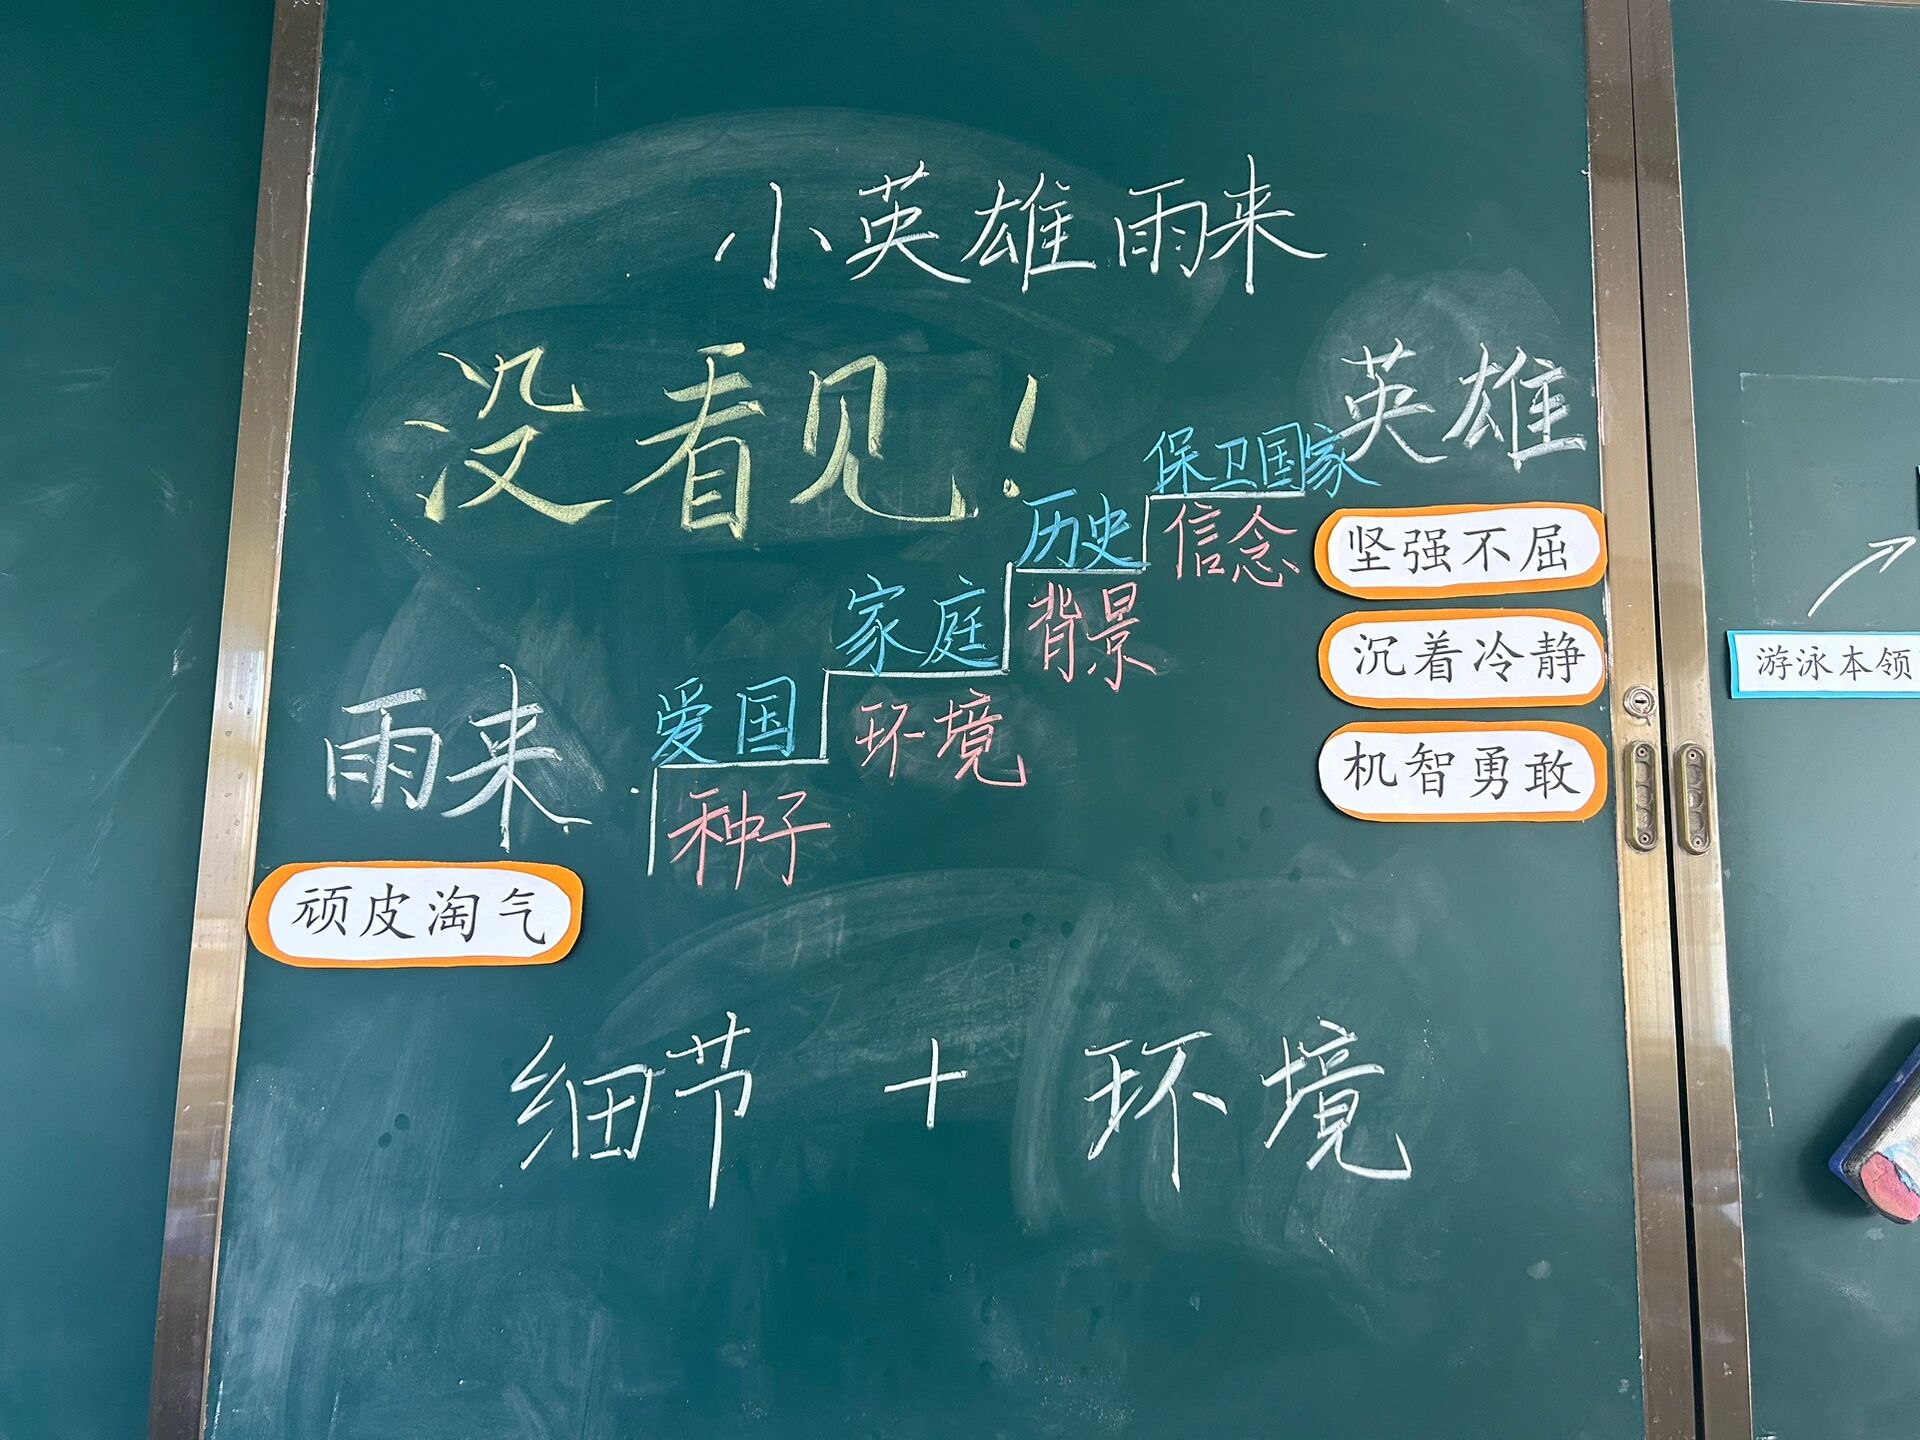 小英雄雨来
没看见！
英雄
保卫国家
信念
历史
背景
家庭
环境
爱国
种子
雨来
顽皮淘气
坚强不屈
沉着冷静
机智勇敢
细节 + 环境
游泳本领